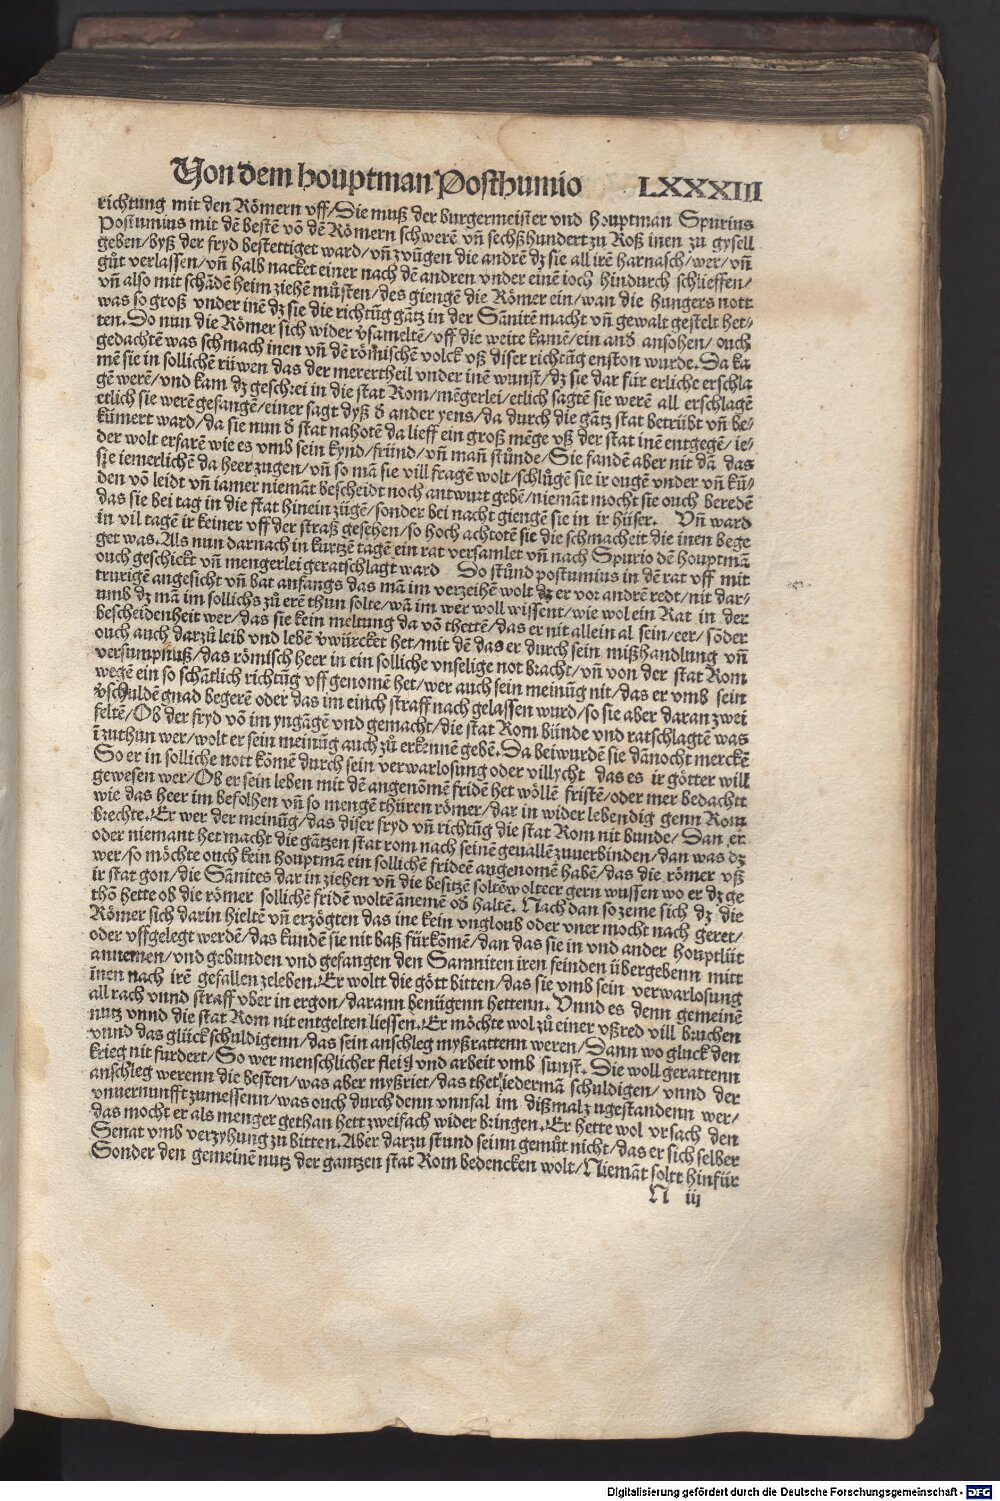 Von dem houptman Posthumio LXXXIII
richtung mit den Römern vff/Sie muß der burgermeister vnd houptman Spurius
Postumius mit dē bestē vō dē Römern schwerē vñ sechßhundert zu Roß inen zu gysell
geben/byß der fryd bestettiget ward/vñ zvügen die andrē dz sie all irē harnasch/wer/vñ
gůt verlassen/vñ halb nacket einer nach dē andren vnder einē ioch hindurch schlieffen/
vñ also mit schādē heim ziehē můsten/des giengē die Römer ein/wan die hungers nott
was so groß vnder inē dz sie die richtūg gātz in der Sānitē macht vñ gewalt gestelt het⸗
ten. Do nun die Römer sich wider v̄sameltē/vff die weite kamē/ein and̄ ansohen/ouch
gedachtē was schmach inen vñ dē römischē volck vß diser richtūg enston wurde. Da ka
mē sie in sollichē rüwen das der merertheil vnder inē wunst/dz sie dar für erliche erschla
gē werē/vnd kam dz geschrei in die stat Rom/mēgerlei/etlich sagtē sie werē all erschlagē
etlich sie werē gefangē/einer sagt dyß d̄ ander yens/da durch die gātz stat betrübt vñ be⸗
kümert ward/da sie nun d̄ stat nahotē da lieff ein groß mēge vß der stat inē entgegē/ie⸗
der wolt erfarē wie es vmb sein kynd/fründ/vñ mañ stůnde/Sie fandē aber nit dā das
sie iemerlichē da heer zugen/vñ so mā sie vill fragē wolt/schlůgē sie ir ougē vnder vñ kū⸗
den vō leidt vñ iamer niemāt bescheidt noch antwurt gebē/niemāt mocht sie ouch beredē
das sie bei tag in die stat hinein zügē/sonder bei nacht giengē sie in ir hüser. Vñ ward
in vil tagē ir keiner vff der straß gesehen/so hoch achtotē sie die schmacheit die inen bege
get was. Als nun darnach in kurtzē tagē ein rat versamlet vñ nach Spurio dē houptmā
ouch geschickt vñ mengerlei geratschlagt ward Do stůnd postumius in dē rat vff mit
trurigē angesicht vñ bat anfangs das mā im verzeihē wolt dz er vor andrē redt/nit dar⸗
umb dz mā im sollichs zů erē thun solte/wā im wer woll wissent/wie wol ein Rat in der
bescheidenheit wer/das sie kein meltung da vō thettē/das er nit allein al sein/eer/sōder
ouch auch darzů leib vnd lebē v̄würcket het/mit dē das er durch sein mißhandlung vñ
versumpnuß/das römisch heer in ein solliche vnselige not bracht/vñ von der stat Rom
wegē ein so schātlich richtūg vff genomē het/wer auch sein meinūg nit/das er vmb sein
v̄schuldē gnad begerē oder das im einch straff nach gelassen wurd/so sie aber daran zwei
feltē/Ob der fryd vō im yngāgē vnd gemacht/die stat Rom bünde vnd ratschlagtē was
ī zuthun wer/wolt er sein meinūg auch zů erkennē gebē. Da bei wurdē sie dānocht merckē
So er in solliche nott kōmē durch sein verwarlosung oder villycht das es ir götter will
gewesen wer/Ob er sein leben mit dē angenōmē fridē het wöllē fristē/oder mer bedacht
wie das heer im befolhen vñ so mengē thüren römer/dar in wider lebendig genn Rom
brechte. Er wer der meinūg/das diser fryd vñ richtūg die stat Rom nit bunde/Dan er
oder niemant het macht die gātzen stat rom nach seinē geuallē zuuerbinden/dan was dz
wer/so möchte ouch kein houptmā ein sollichē frideē augenomē habē/das die römer vß
ir stat gon/die Sānites dar in ziehen vñ die besitzē soltē wolte er gern wussen wo er dz ge
thō hette ob die römer sollichē fridē woltē ānemē od̄ haltē. Nach dan so zeme sich dz die
Römer sich darin hieltē vñ erzögten das ine kein vngloub oder vner mocht nach geret/
oder vffgelegt werdē/das kundē sie nit baß fürkōmē/dan das sie in vnd ander houptlüt
annemen/vnd gebunden vnd gefangen den Samniten iren feinden übergebenn mitt
inen nach irē gefallen zeleben. Er woltt die gött bitten/das sie vmb sein verwarlosung
all rach vnnd straff vber in ergon/darann benügenn hettenn. Vnnd es denn gemeinē
nutz vnnd die stat Rom nit entgelten liessen. Er möchte wol zů einer vßred vill bruchen
vnnd das glück schuldigenn/das sein anschleg myßrattenn weren/Dann wo gluck den
krieg nit furdert/So wer menschlicher fleiß vnd arbeit vmb sunst. Die woll gerattenn
anschleg werenn die besten/was aber myßriet/das thet iedermā schuldigen/vnnd der
vnuernunfft zumessenn/was ouch durch denn vnnfal im dißmal zugestandenn wer/
das mocht er als menger gethan hett zweifach wider bringen. Er hette wol vrsach den
Senat vmb verzyhung zu bitten. Aber darzu stund seinn gemůt nicht/das er sich selber
Sonder den gemeinē nutz der gantzen stat Rom bedencken wolt/Niemāt soltt hinfür
N iij
Digitalisierung gefördert durch die Deutsche Forschungsgemeinschaft - DFG